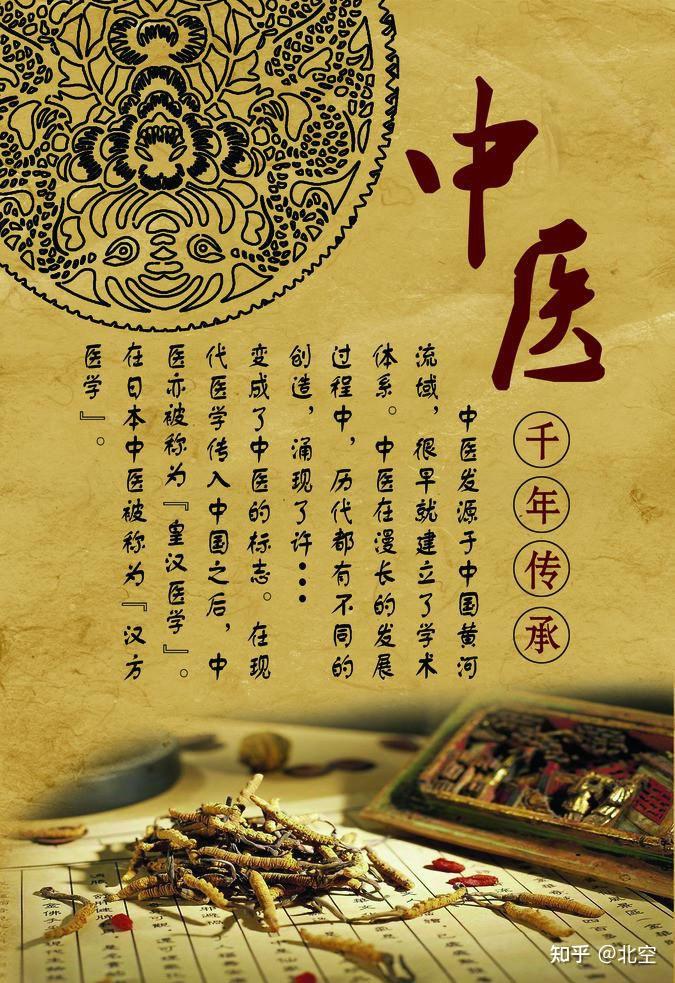 中医
千年传承
中医发源于中国黄河
流域，很早就建立了学术
体系。中医在漫长的发展
过程中，历代都有不同的
创造，涌现了许•••
变成了中医的标志。在现
代医学传入中国之后，中
医亦被称为『皇汉医学』。
在日本中医被称为『汉方
医学』。
知乎 @北空